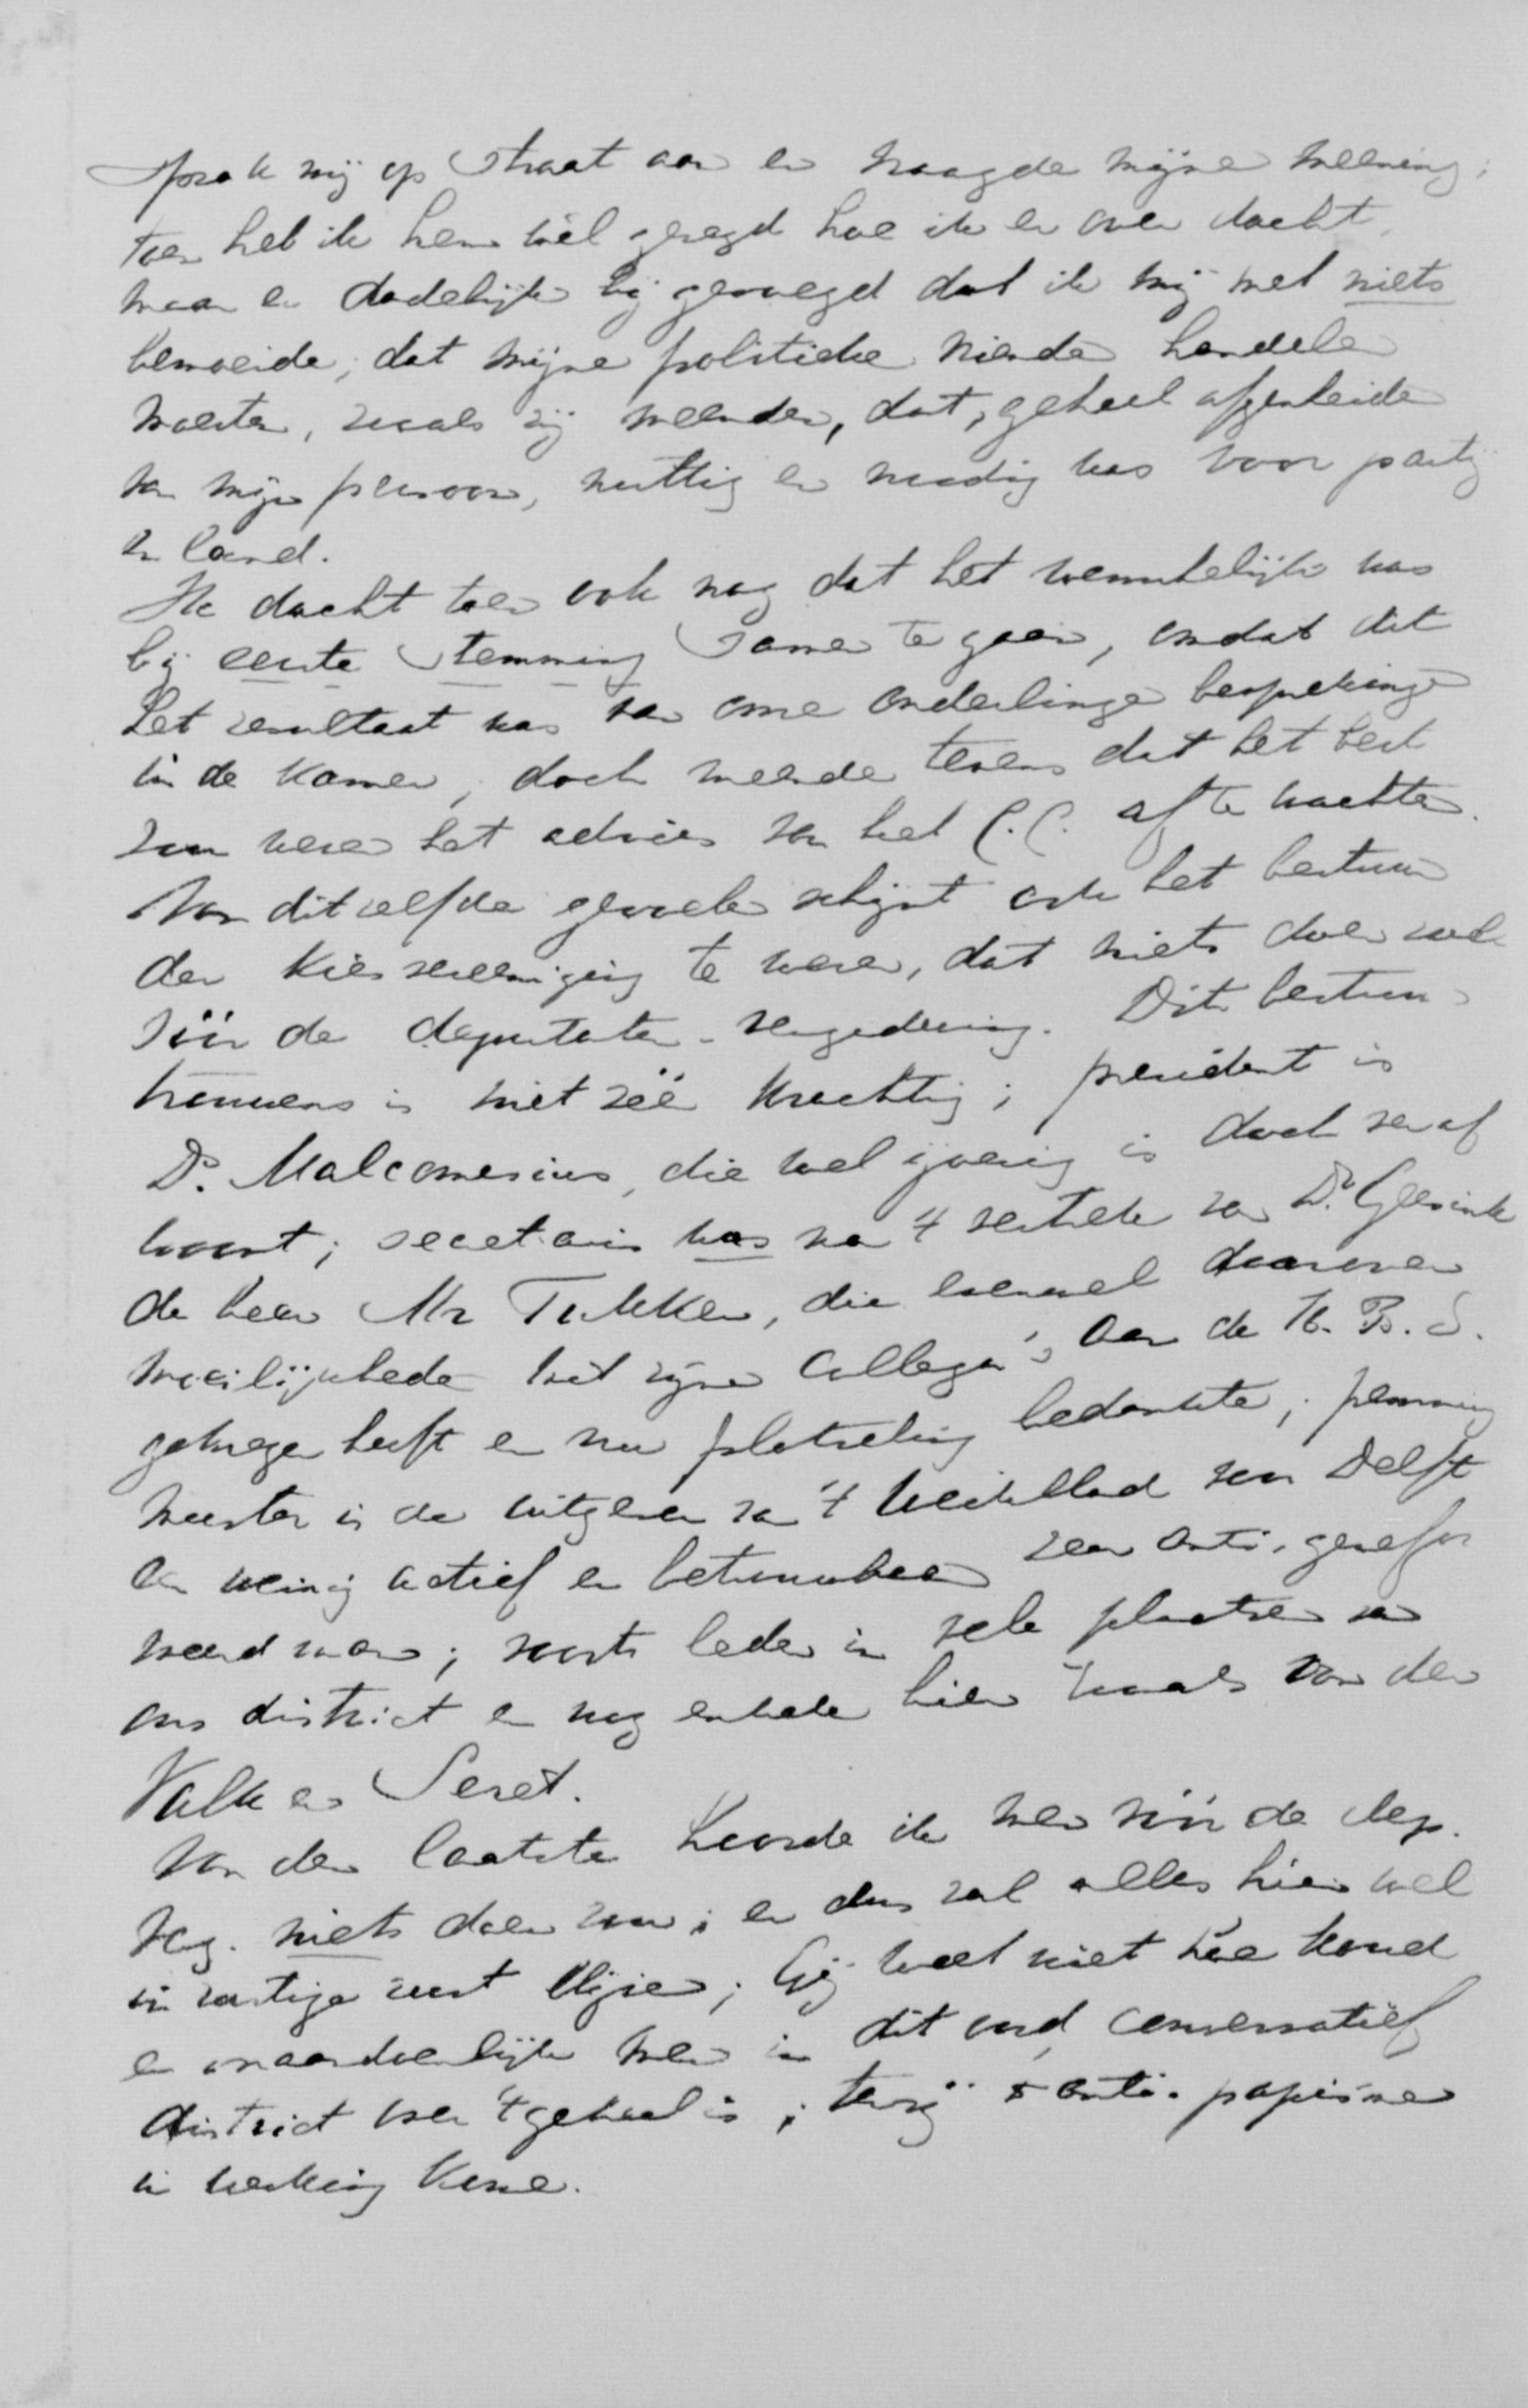 sprak mij op straat aan en vraagde mijne meening;
toen heb ik hem wèl gezegd hoe ik er over dacht,
maar er dadelijk bij gevoegd dat ik mij met niets
bemoeide, dat mijne politieke vrienden handelen
moesten, zooals zij meenden, dat, geheel afgescheiden
van mijn persoon, nuttig en noodig was voor partij
en land.
Ik dacht toen ook nog dat het wenschelijk was
bij eerste stemming samen te gaan, omdat dit
het resultaat was van onze onderlinge besprekingen
in de Kamer, doch meende tevens dat het best
zou wezen het advies van het C.C. af te wachten.
Van ditzelfde gevoelen schijnt ook het bestuur
der Kiesvereeniging te wezen, dat niets doen wil
vóór de deputaten-vergadering. Dit bestuur
trouwens is niet zéér krachtig; president is
Ds. Malcomesius, die wel ijverig is doch veraf
woont; secretaris was na 't vertrek van Dr. Geesink
de heer Mr Tukker, die evenwel daarover
moeilijkheden met zijne Collega's aan de H.B.S.
gekregen heeft en nu plotseling bedankte; penning
meester is de uitgever van 't Weekblad van Delft
een weinig actief en betrouwbaar zeer anti-gerefor
meerd man; voorts leden in vele plaatsen van
ons district en nog enkele hier zooals van der
Valk en Seret.
Van den laatste hoorde ik men vóór de dep.
verg. niets doen zou; en dus zal alles hier wel
in rustige rust blijven; Gij weet niet hoe koud
en onaandoenlijk men in dit oud conservatief
district over 't geheel is, tenzij anti-papisme
in werking kome.